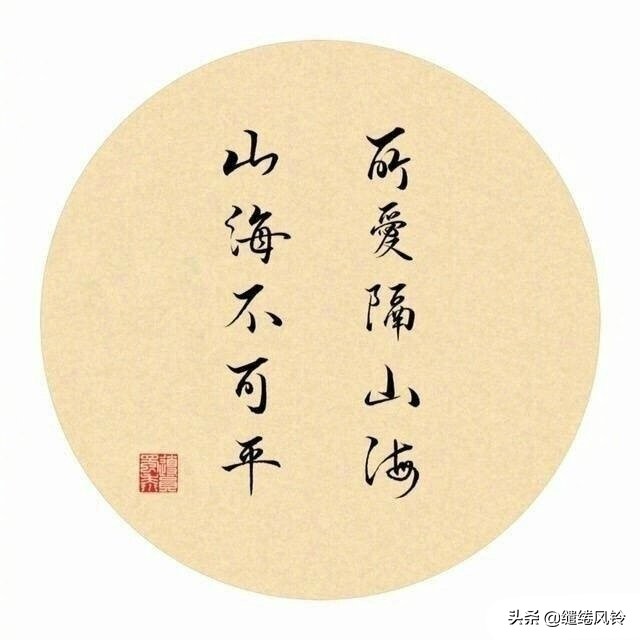 所愛隔山海
山海不可平
头条 @缱绻风铃